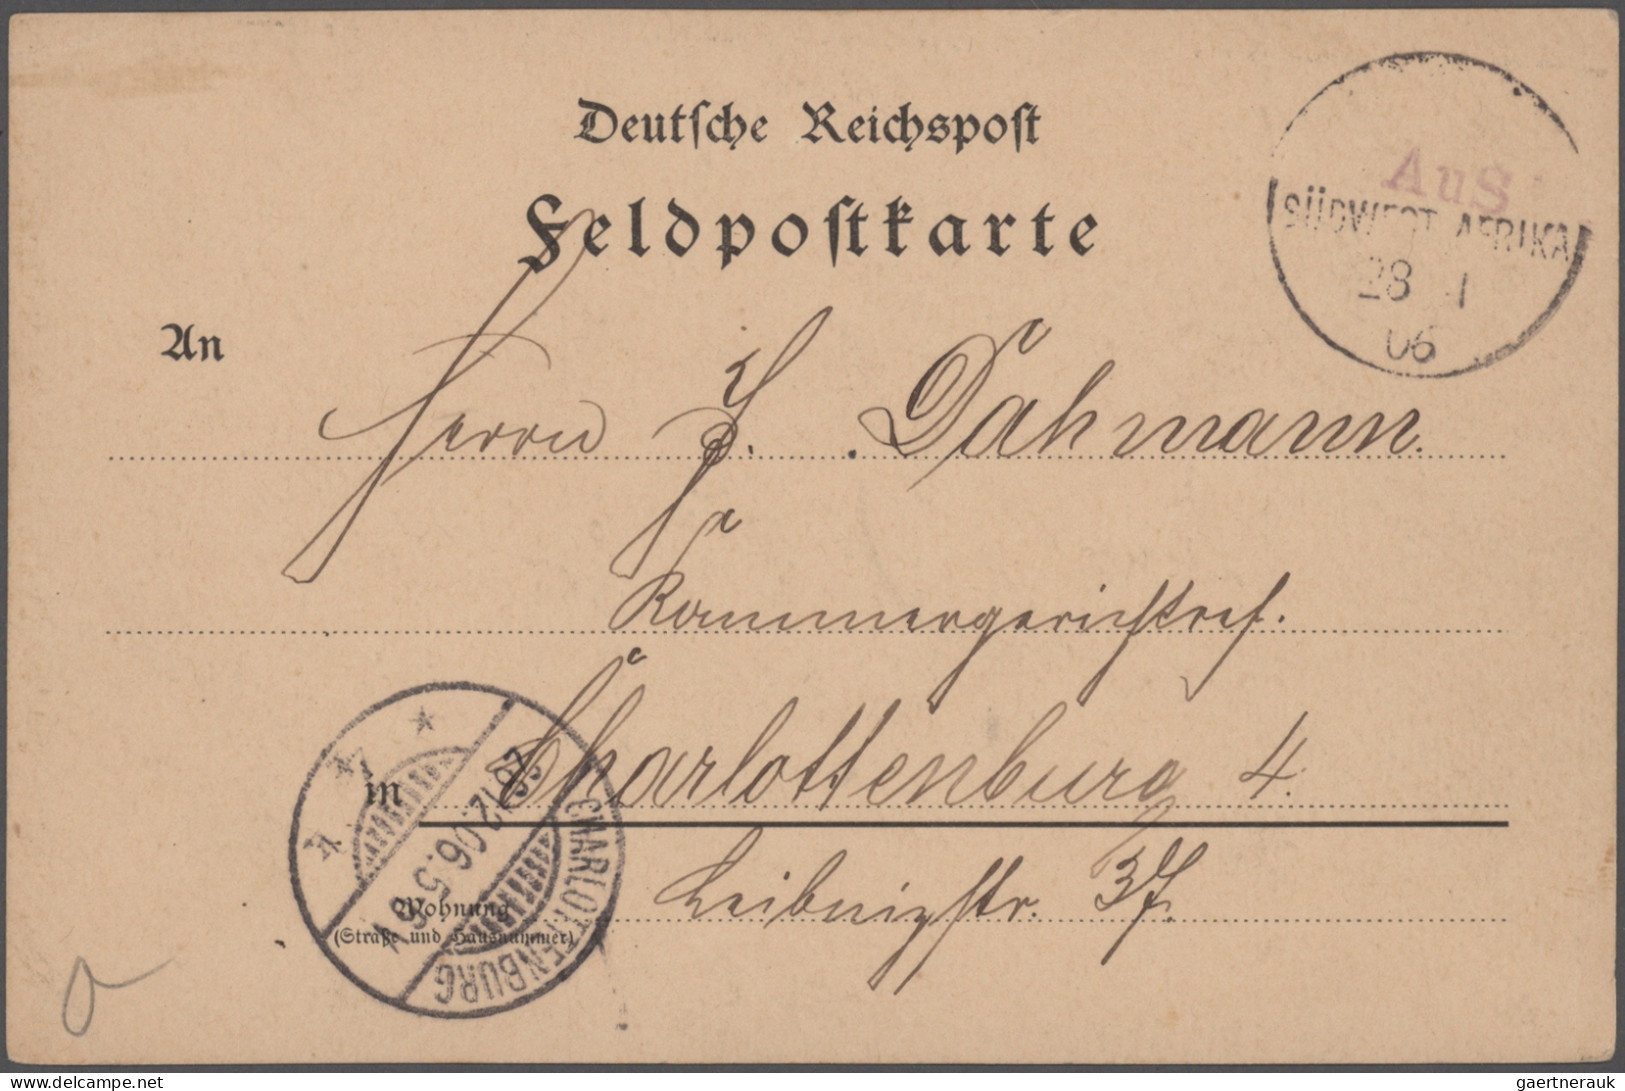 Deutsche Reichspost
Feldpostkarte
AuS
SÜDWEST AFRIKA
28 1
06
An
Herrn H. Dahmann.
Kammergerichtsref.
in Charlottenburg 4.
CHARLOTTENBURG
28.12.06.5-6
Leibnizstr. 37.
Wohnung
(Straße und Hausnummer)
www.delcampe.net
gaertnerauk